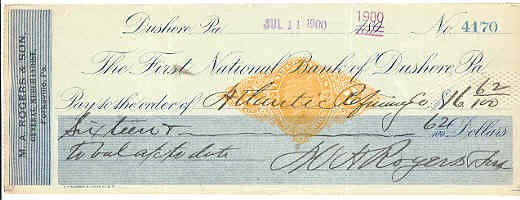 M. A. ROGERS & SON,
GENERAL MERCHANDISE,
Forksville, Pa.
Dushore, Pa. JUL 11 1900 1900 189 No. 4170
The First National Bank of Dushore, Pa.
Pay to the order of Atlantic Refining Co. $16 62/100
Sixteen & 62/100 Dollars
to bal ap to date M A Rogers & Son